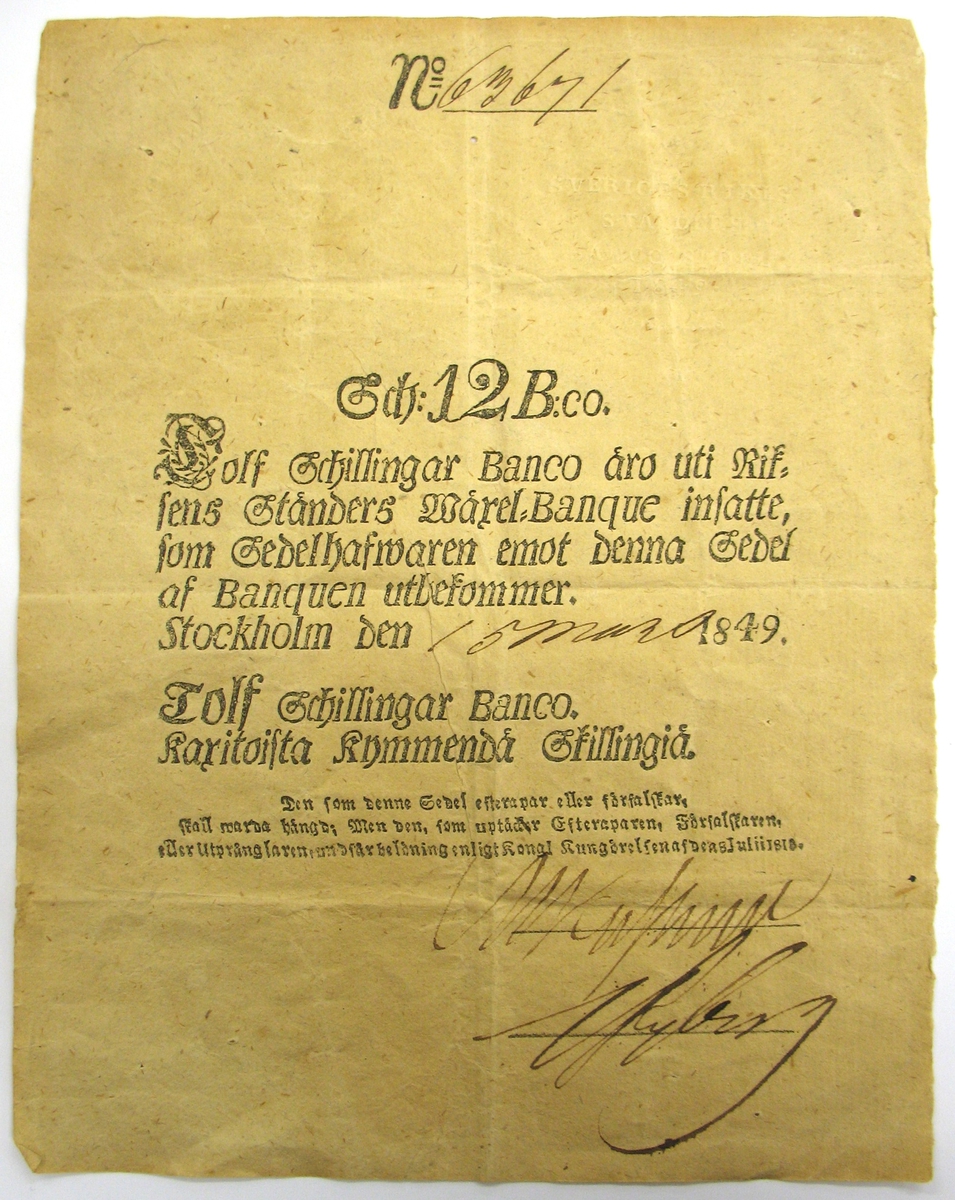 No 63671
SVERIGES RIKES
STÄNDERS
Sch: 12 B:co.
Tolf Schillingar Banco äro uti Rik-
sens Ständers Wäxel-Banque insatte,
som Sedelhafwaren emot denna Sedel
af Banquen utbekommer.
Stockholm den 15 Mars 1849.
Tolf Schillingar Banco.
Kaxitoista Kymmendä Skillingiä.
Den som denne Sedel efterapar eller förfalskar,
skall warda hängd; Men den, som uptäcker Efteraparen, Förfalskaren,
eller Utpränglaren, undfår belöning enligt Kongl Kungörelsen af den 8 Julii 1818.